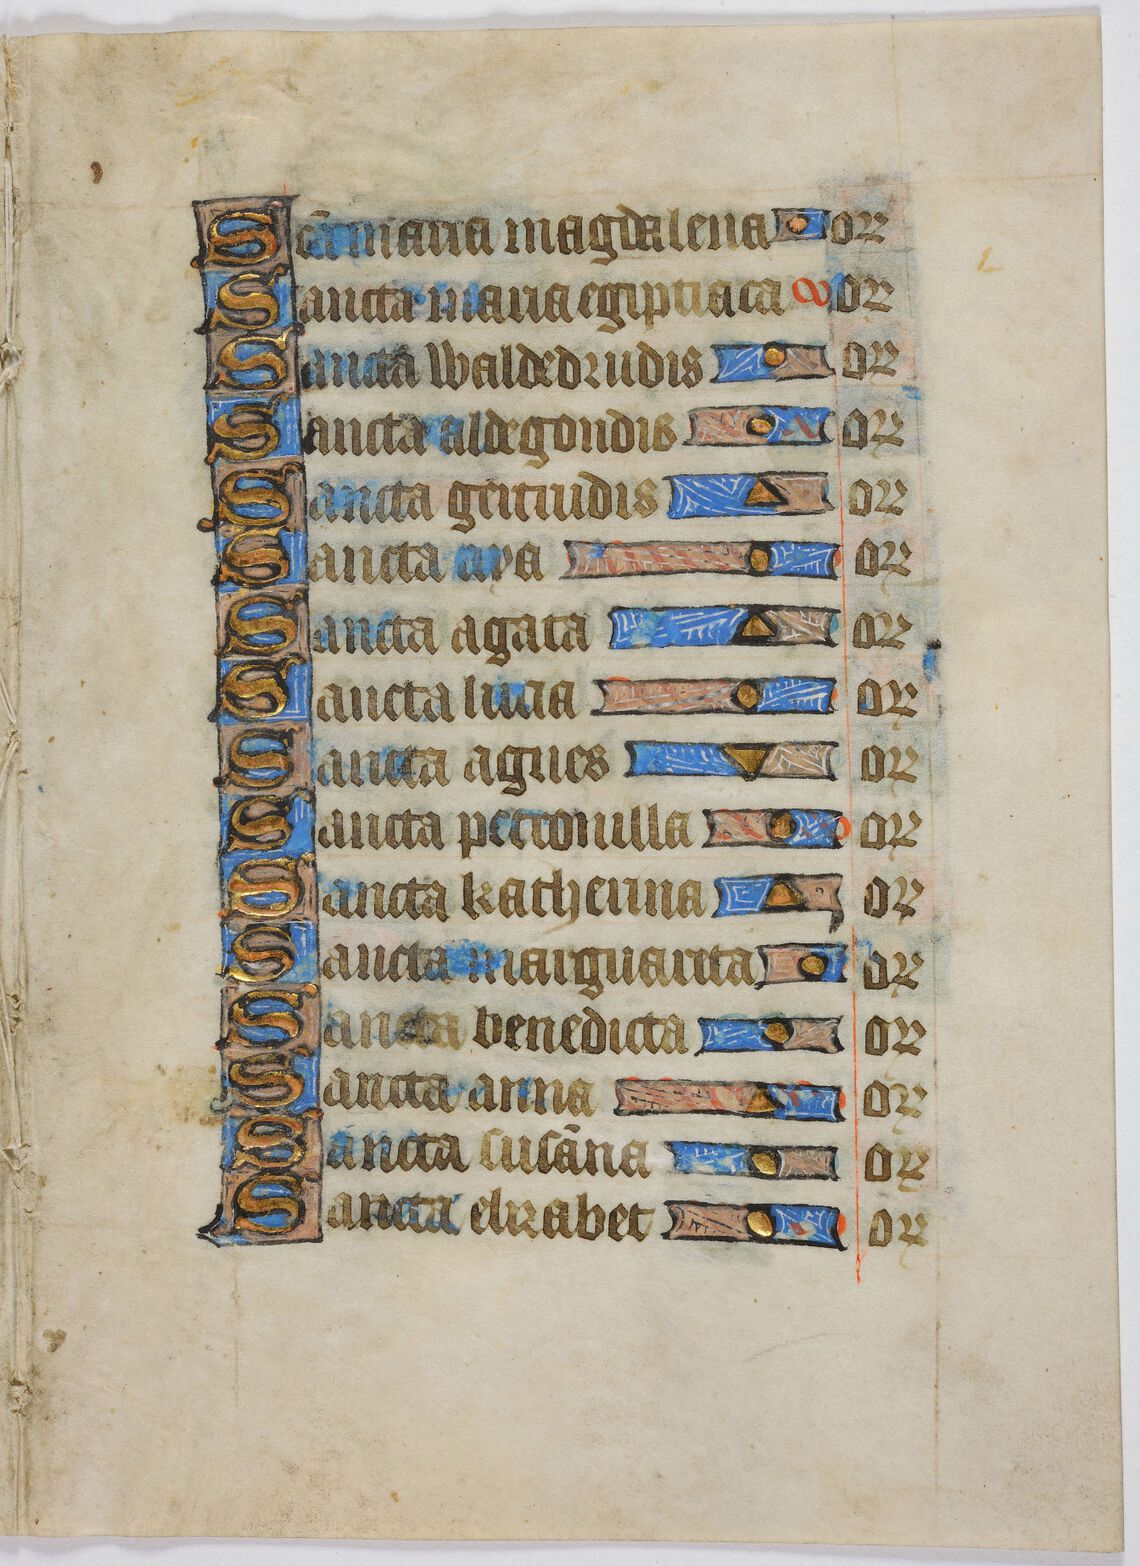 Scā maria magdalena or
Sancta maria egiptiaca or
Sancta waldedrudis or
Sancta aldegondis or
Sancta gertrudis or
Sancta aya or
Sancta agata or
Sancta lucia or
Sancta agnes or
Sancta petronilla or
Sancta katherina or
Sancta marguarita or
Sancta benedicta or
Sancta anna or
Sancta susāna or
Sancta elizabet or